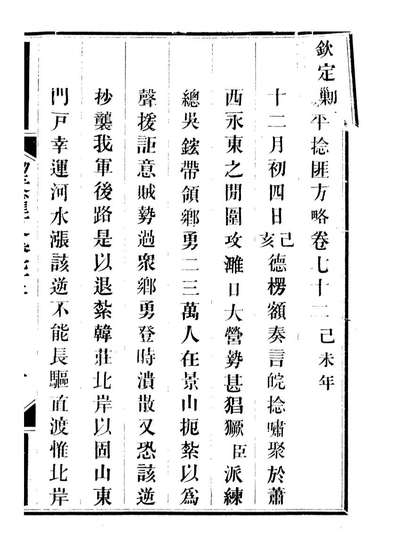 欽定剿平捻匪方略卷七十二己未年
十二月初四日己亥德楞額奏言皖捻嘯聚於蕭
西永東之閒圍攻濉口大營勢甚猖獗臣派練
總吳鋐帶領鄉勇二三萬人在景山扼紮以爲
聲援詎意賊勢過衆鄉勇登時潰散又恐該逆
抄襲我軍後路是以退紮韓莊北岸以固山東
門戸幸運河水漲該逆不能長驅直渡惟北岸